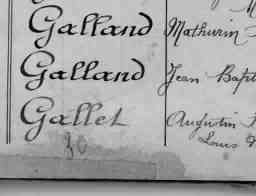 Galland Mathurin
Galland Jean Bapt
Gallet Augustin
Louis
30